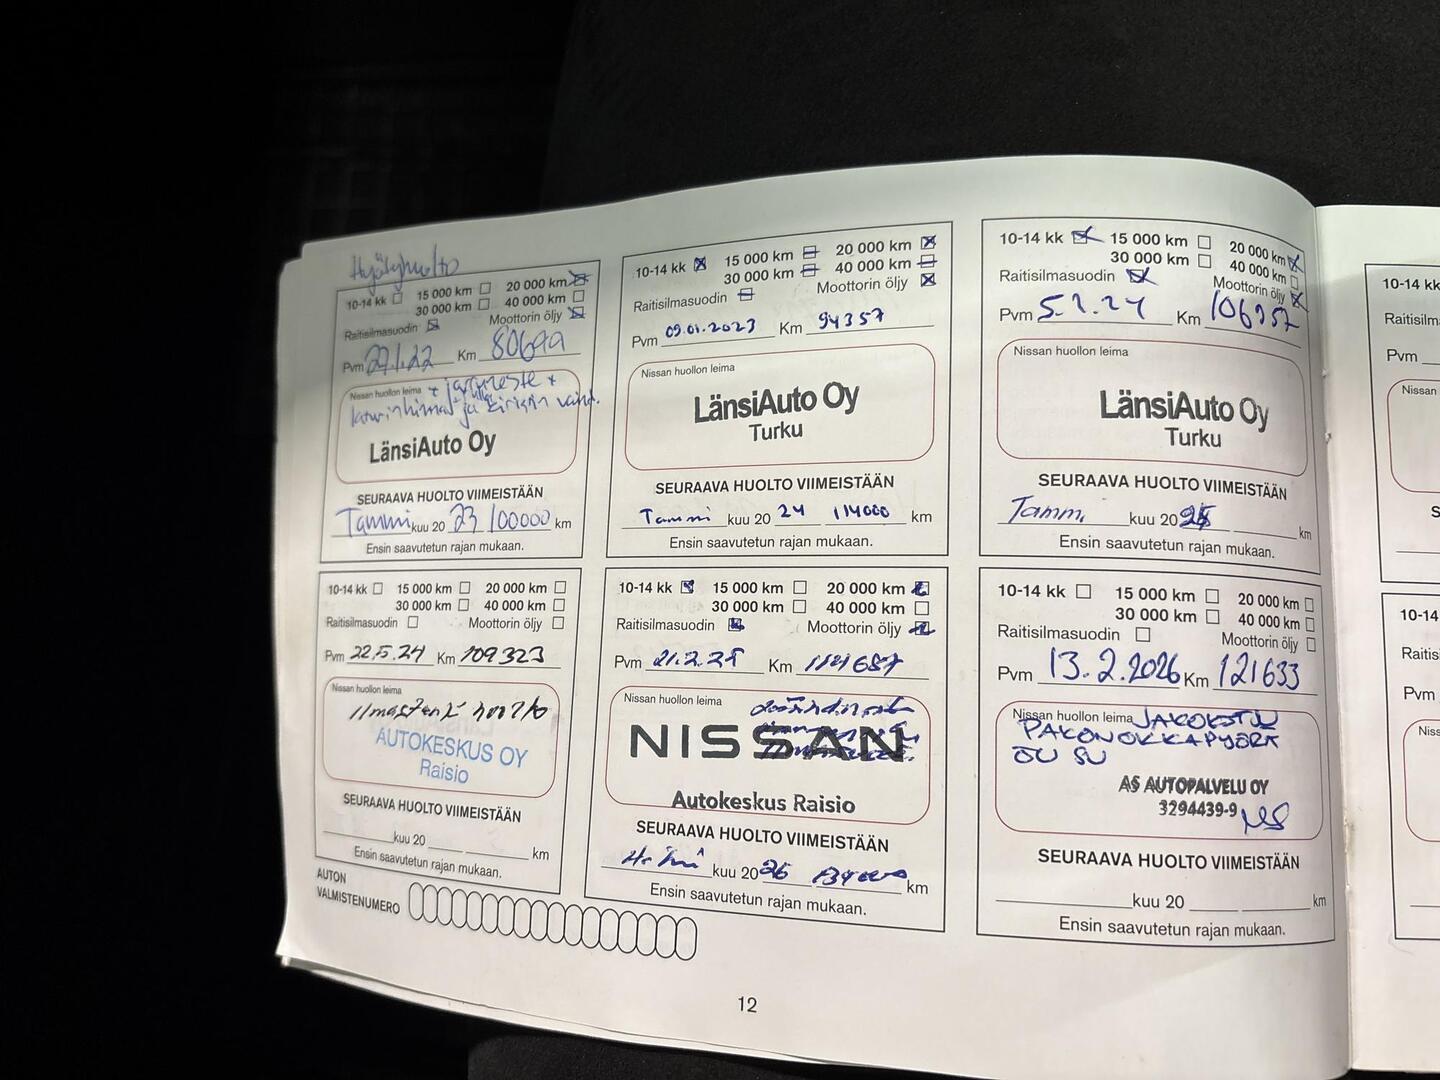 10-14 kk 15 000 km 20 000 km
30 000 km 40 000 km
Raitisilmasuodin Moottorin öljy
Pvm Km
Nissan huollon leima + jarruneste +
LänsiAuto Oy
SEURAAVA HUOLTO VIIMEISTÄÄN
Tammi kuu 20 23 100000 km
Ensin saavutetun rajan mukaan.
10-14 kk 15 000 km 20 000 km
30 000 km 40 000 km
Raitisilmasuodin Moottorin öljy
Pvm 09.01.2023 Km 94357
Nissan huollon leima
LänsiAuto Oy
Turku
SEURAAVA HUOLTO VIIMEISTÄÄN
Tammi kuu 20 24 114000 km
Ensin saavutetun rajan mukaan.
10-14 kk 15 000 km 20 000 km
30 000 km 40 000 km
Raitisilmasuodin Moottorin öljy
Pvm Km
Nissan huollon leima
LänsiAuto Oy
Turku
SEURAAVA HUOLTO VIIMEISTÄÄN
Tammi kuu 20 km
Ensin saavutetun rajan mukaan.
10-14 kk 15 000 km 20 000 km
30 000 km 40 000 km
Raitisilmasuodin Moottorin öljy
Pvm 22.5.24 Km 109323
Nissan huollon leima
AUTOKESKUS OY
Raisio
SEURAAVA HUOLTO VIIMEISTÄÄN
kuu 20 km
Ensin saavutetun rajan mukaan.
10-14 kk 15 000 km 20 000 km
30 000 km 40 000 km
Raitisilmasuodin Moottorin öljy
Pvm 21.2.25 Km 114687
Nissan huollon leima
NISSAN
Autokeskus Raisio
SEURAAVA HUOLTO VIIMEISTÄÄN
kuu 20 26 km
Ensin saavutetun rajan mukaan.
10-14 kk 15 000 km 20 000 km
30 000 km 40 000 km
Raitisilmasuodin Moottorin öljy
Pvm 13.2.2026 Km 121633
Nissan huollon leima
AS AUTOPALVELU OY
3294439-9
SEURAAVA HUOLTO VIIMEISTÄÄN
kuu 20 km
Ensin saavutetun rajan mukaan.
AUTON
VALMISTENUMERO
12
10-14 kk
Pvm
Nissan
Pvm